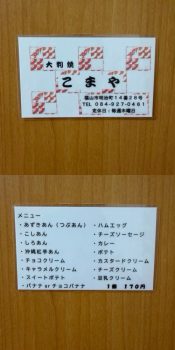 大判焼
こまや
福山市明治町14番26号
TEL 084-927-0461
定休日:毎週木曜日
メニュー
・あずきあん(つぶあん)
・こしあん
・しろあん
・沖縄紅芋あん
・チョコクリーム
・キャラメルクリーム
・スイートポテト
・バナナ or チョコバナナ
・ハムエッグ
・チーズソーセージ
・カレー
・ポテト
・カスタードクリーム
・チーズクリーム
・豆乳クリーム
1個 170円